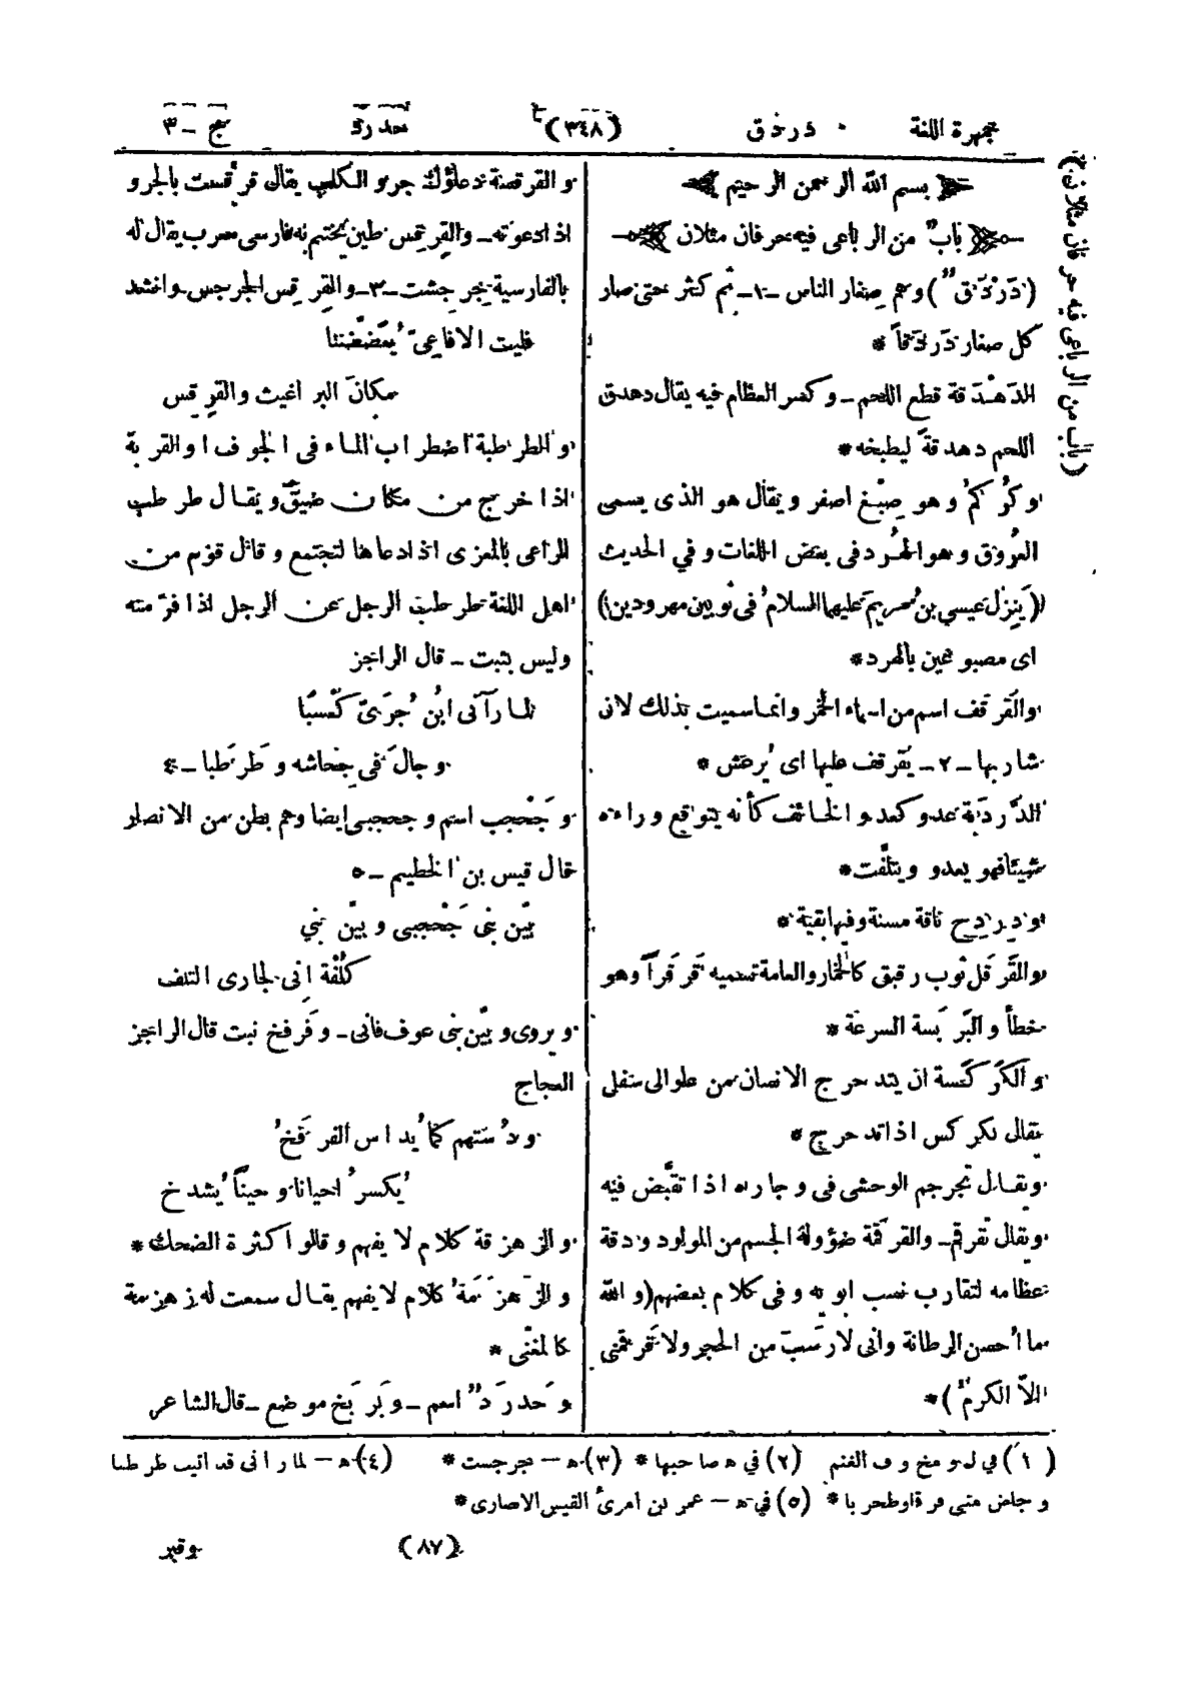 جمهرة اللغة · دردق (٣٤٨) حدرد ج ـ ٣
(باب من الرباعى فيه حرفان مثلان)
بسم الله الرحمن الرحيم
باب من الرباعى فيه حرفان مثلان
(دَرْدَق ٌ) وهم صِغار الناس ـ ١ ـ ثم كثر حتى صار
كل صغار دَردَقاً *
الدَهْدَقة قطع اللحم ـ وكسر العظام فيه يقال دهدق
اللحم دهدقةً ليطبخه *
وكُركُمُ وهو صِبْغ اصفر ويقال هو الذى يسمى
العُروق وهو الهُرد فى بعض اللغات وفي الحديث
(يَنزِل عيسي بن مريم عليهما السلام فى ثوبين مهرودين)
اى مصبوغين بالهرد *
والقَرقف اسم من اسماء الخمر وانما سميت بذلك لان
شاربها ـ ٢ ـ يُقرقف عليها اى يُرعَش *
الدَّردَبة عدو كعدو الخائف كأنه يتوقع وراءه
شيئا فهو يعدو ويتلفّت *
ودِردِح ناقة مسنة وفيها بقية *
والقَرقَل ثوب رقيق كالخمار والعامة تسميه قَرقَراً وهو
خطأ والبَربَسة السرعة *
والكَركَسة ان يتدحرج الانسان من علو الى سفل
يقال تكركس اذا تدحرج *
ويقال تجرجم الوحشى فى وجاره اذا تقبَّض فيه
ويقال تقرقم ـ والقرقمة ضؤولة الجسم من المولود ودقة
عظامه لتقارب نسب ابويه وفى كلام بعضهم (والله
ما اُحسن الرطانة وانى لارسَبَ من الحجر ولا تَقرقمنى
الاّ الكرمُ) *
والقرقسة دعاؤك جرو الكلب يقال قرقست بالجرو
اذا دعوته ـ والقِرقِس طين يختم به فارسى معرب يقال له
بالفارسية جِرجِشت ـ ٣ ـ والقِرقِس الجرجس وانشد
فليت الافاعىَ يُعَضِّضْننا
مكانَ البراغيث والقِرقِس
والطرطبة اضطراب الماء فى الجوف او القربة
اذا خرج من مكان ضيّق ويقال طرطب
الراعى بالمعزى اذا دعاها لتجتمع وقال قوم من
اهل اللغة طرطب الرجل عن الرجل اذا فرّ منه
وليس بثبت ـ قال الراجز
لما رَآنى ابْن جُرَىّ كَعْسَبَا
وجالَ فى جِحاشه وطَرطَبا ـ ٤
وجَحْجب اسم وجحجبى ايضا وهم بطن من الانصار
قال قيس بن الخطيم ـ ٥
بَيْن بَنى جَحْجبى وبيْن بَني
كُلْفة انى لجارى التلف
ويروى وبيْن بنى عوف فانى ـ وفَرفخ نبت قال الراجز
العجاج
ودُستهم كما يُداس الفرفَخُ
يُكسرُ احيانا وحيناً يُشدخ
والزهزقة كلام لا يفهم وقالوا كثرة الضحك *
والزهزمة كلام لا يفهم يقال سمعت له زهزمة
كالمغنّى *
وحَدرَدٌ اسم ـ وبَربَخ موضع ـ قال الشاعر
(١) في ل ـ ومخ وف الغنم (٢) في ه صاحبها * (٣) ه ـ جرجست * (٤) ه ـ لما رانى قد اتيب طرطبا
(٥) في ه ـ عمر بن امرئ القيس الانصارى *
(٨٧) وقير